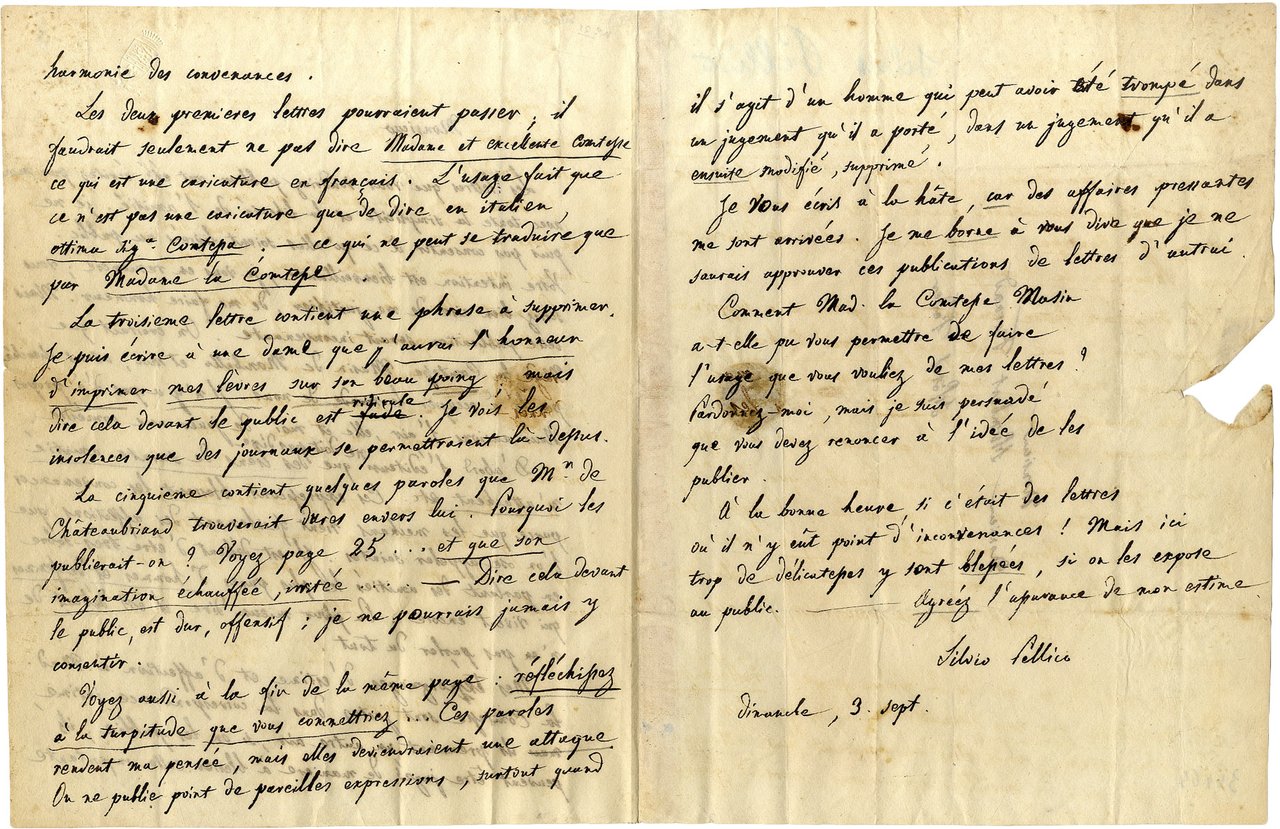 harmonie des convenances.
Les deux premieres lettres pourraient passer; il
faudrait seulement ne pas dire Madame et excellente Comtesse
ce qui est une caricature en français. L'usage fait que
ce n'est pas une caricature que de dire en italien,
ottima Sigª Contessa: — ce qui ne peut se traduire que
par Madame la Comtesse
La troisieme lettre contient une phrase à supprimer.
Je puis écrire à une dame que j'aurai l'honneur
d'imprimer mes lèvres sur son beau poing; mais
dire cela devant le public est fade ridicule. Je vois les
insolences que des journaux se permettraient là-dessus.
La cinquieme contient quelques paroles que Mʳ. de
Châteaubriand trouverait dures envers lui. Pourquoi les
publierait-on? Voyez page 25 ... et que son
imagination échauffée, irritée — Dire cela devant
le public, est dur, offensif; je ne pourrais jamais y
consentir.
Voyez aussi à la fin de la même page: réfléchissez
à la turpitude que vous commettriez... Ces paroles
rendent ma pensée, mais elles deviendraient une attaque
On ne publie point de pareilles expressions, surtout quand
il s'agit d'un homme qui peut avoir été trompé dans
un jugement qu'il a porté, dans un jugement qu'il a
ensuite modifié, supprimé.
Je vous écris à la hâte, car des affaires pressantes
me sont arrivées. Je me borne à vous dire que je ne
saurais approuver ces publications de lettres d'autrui.
Comment Mad. la Comtesse Masin
a-t-elle pu vous permettre de faire
l'usage que vous vouliez de mes lettres?
Pardonnez-moi, mais je suis persuadé
que vous devez renoncer à l'idée de les
publier.
À la bonne heure, si c'était des lettres
où il n'y eût point d'inconvenances! Mais ici
trop de délicatesses y sont blessées, si on les expose
au public. — Agréez l'assurance de mon estime.
Silvio Pellico
dimanche, 3. sept.